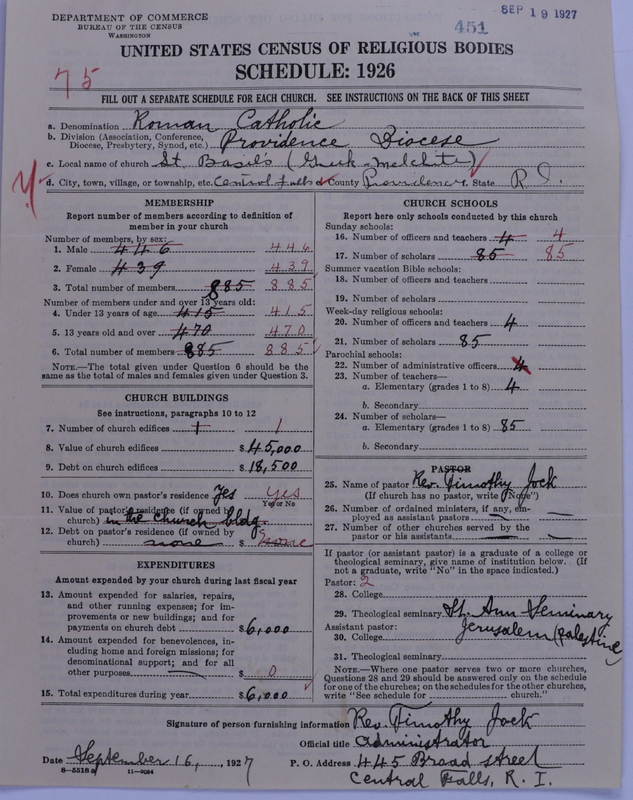 DEPARTMENT OF COMMERCE
BUREAU OF THE CENSUS
WASHINGTON
SEP 19 1927
451
UNITED STATES CENSUS OF RELIGIOUS BODIES
SCHEDULE: 1926
75
FILL OUT A SEPARATE SCHEDULE FOR EACH CHURCH. SEE INSTRUCTIONS ON THE BACK OF THIS SHEET
a. Denomination Roman Catholic
b. Division (Association, Conference, Diocese, Presbytery, Synod, etc.) Providence Diocese
c. Local name of church St. Basil's (Greek-Melchite)
d. City, town, village, or township, etc. Central Falls County Providence State R. I.
MEMBERSHIP
Report number of members according to definition of
member in your church
Number of members, by sex:
1. Male 446 446
2. Female 439 439
3. Total number of members 885 885
Number of members under and over 13 years old:
4. Under 13 years of age 415 415
5. 13 years old and over 470 470
6. Total number of members 885 885
NOTE.—The total given under Question 6 should be
same as the total of males and females given under Question 3.
CHURCH BUILDINGS
See instructions, paragraphs 10 to 12
7. Number of church edifices 1 1
8. Value of church edifices $ 45,000
9. Debt on church edifices $ 18,500
10. Does church own pastor's residence Yes yes
Yes or No
11. Value of pastor's residence (if owned by
church) in the church bldg.
12. Debt on pastor's residence (if owned by
church) none $ None
EXPENDITURES
Amount expended by church during last fiscal year
13. Amount expended for salaries, repairs,
and other running expenses; for im-
provements or new buildings; and for
payments on church debt $ 6,000
14. Amount expended for benevolences, in-
cluding home and foreign missions; for
denominational support; and for all
other purposes $ 0
15. Total expenditures during year $ 6,000
CHURCH SCHOOLS
Report here only schools conducted by this church
Sunday schools:
16. Number of officers and teachers 4 4
17. Number of scholars 85 85
Summer vacation Bible schools:
18. Number of officers and teachers
19. Number of scholars
Week-day religious schools:
20. Number of officers and teachers 4
21. Number of scholars 85
Parochial schools:
22. Number of administrative officers 4
23. Number of teachers—
a. Elementary (grades 1 to 8) 4
b. Secondary
24. Number of scholars—
a. Elementary (grades 1 to 8) 85
b. Secondary
PASTOR
25. Name of pastor Rev. Timothy Jock
(If church has no pastor, write "None")
26. Number of ordained ministers, if any, em-
ployed as assistant pastors
27. Number of other churches served by the
pastor or his assistants
If pastor (or assistant pastor) is a graduate of a college or
theological seminary, give name of institution below. (If
not a graduate, write "No" in the space indicated.)
Pastor: 2
28. College
29. Theological seminary St. Ann Seminary
Assistant pastor: Jerusalem (palestine
30. College
31. Theological seminary
NOTE.—Where one pastor serves two or more churches,
Questions 28 and 29 should be answered only on the schedule
for one of the churches; on the schedules for the other churches,
write "See schedule for church."
Signature of person furnishing information Rev. Timothy Jock
Official title Administrator
Date September 16, 1927 P. O. Address 445 Broad street
8—5518a 11—9064 Central Falls, R. I.